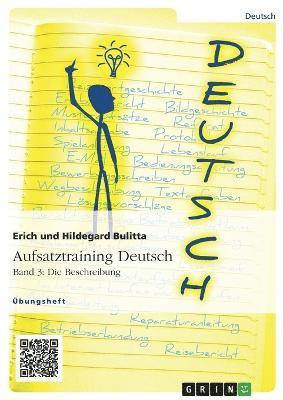 Deutsch
DEUTSCH
Reizwortgeschichte
Bildgeschichte
Inhaltsangabe
Protokoll
Lebenslauf
E-Mail
Bedienungsanleitung
Bewerbungsschreiben
Wegbeschreibung
Lösungsvorschläge
Erich und Hildegard Bulitta
Aufsatztraining Deutsch
Band 3: Die Beschreibung
Übungsheft
Reparaturanleitung
Betriebserkundung
Reisebericht
GRIN